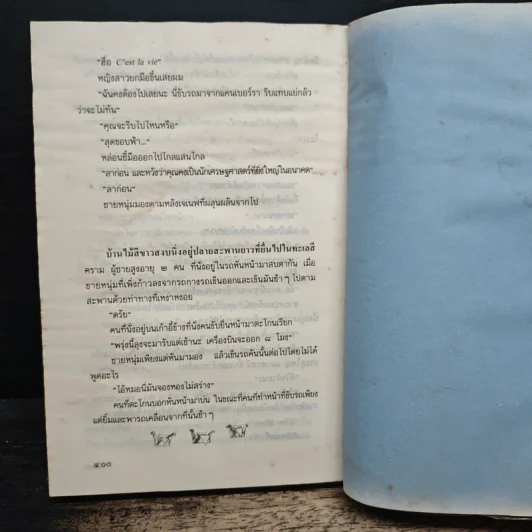 "ฮือ C'est la vie"
หญิงสาวยกมือขึ้นเสยผม
"ฉันคงต้องไปเสียนะ นี่ขับรถมาจากแคนเบอร์รา รีบแทบแย่กลัว
ว่าจะไม่ทัน"
"คุณจะรีบไปไหนหรือ"
"สุดขอบฟ้า..."
หล่อนชี้มือออกไปไกลแสนไกล
"ลาก่อน และหวังว่าคุณคงเป็นนักเศรษฐศาสตร์ที่ยิ่งใหญ่ในอนาคต"
"ลาก่อน"
ชายหนุ่มมองตามหลังเจนเฟที่ผลุนผลันจากไป
บ้านไม้สีขาวสงบนิ่งอยู่ปลายสะพานยาวที่ยื่นไปในทะเลสี
คราม ผู้ชายสูงอายุ ๒ คน ที่นั่งอยู่ในรถหันหน้ามาสบตากัน เมื่อ
ชายหนุ่มที่เพิ่งก้าวลงจากรถกางรถเข็นออกและเข็นมันช้า ๆ ไปตาม
สะพานด้วยท่าทางที่เหงาหงอย
"ดรัย"
คนที่นั่งอยู่บนเก้าอี้ข้างที่นั่งคนขับยื่นหน้ามาตะโกนเรียก
"พรุ่งนี้ลุงจะมารับแต่เช้านะ เครื่องบินจะออก ๘ โมง"
ชายหนุ่มเพียงแต่หันมามอง แล้วเข็นรถคันนั้นต่อไปโดยไม่ได้
พูดอะไร
"ไอ้หมอนี่มันจองหองไม่สร่าง"
คนที่ตะโกนบอกหันหน้ามาบ่น ในขณะที่คนที่ทำหน้าที่ขับรถเพียง
แต่ยิ้มและพารถเคลื่อนจากที่นั้นช้า ๆ
๔๑๐